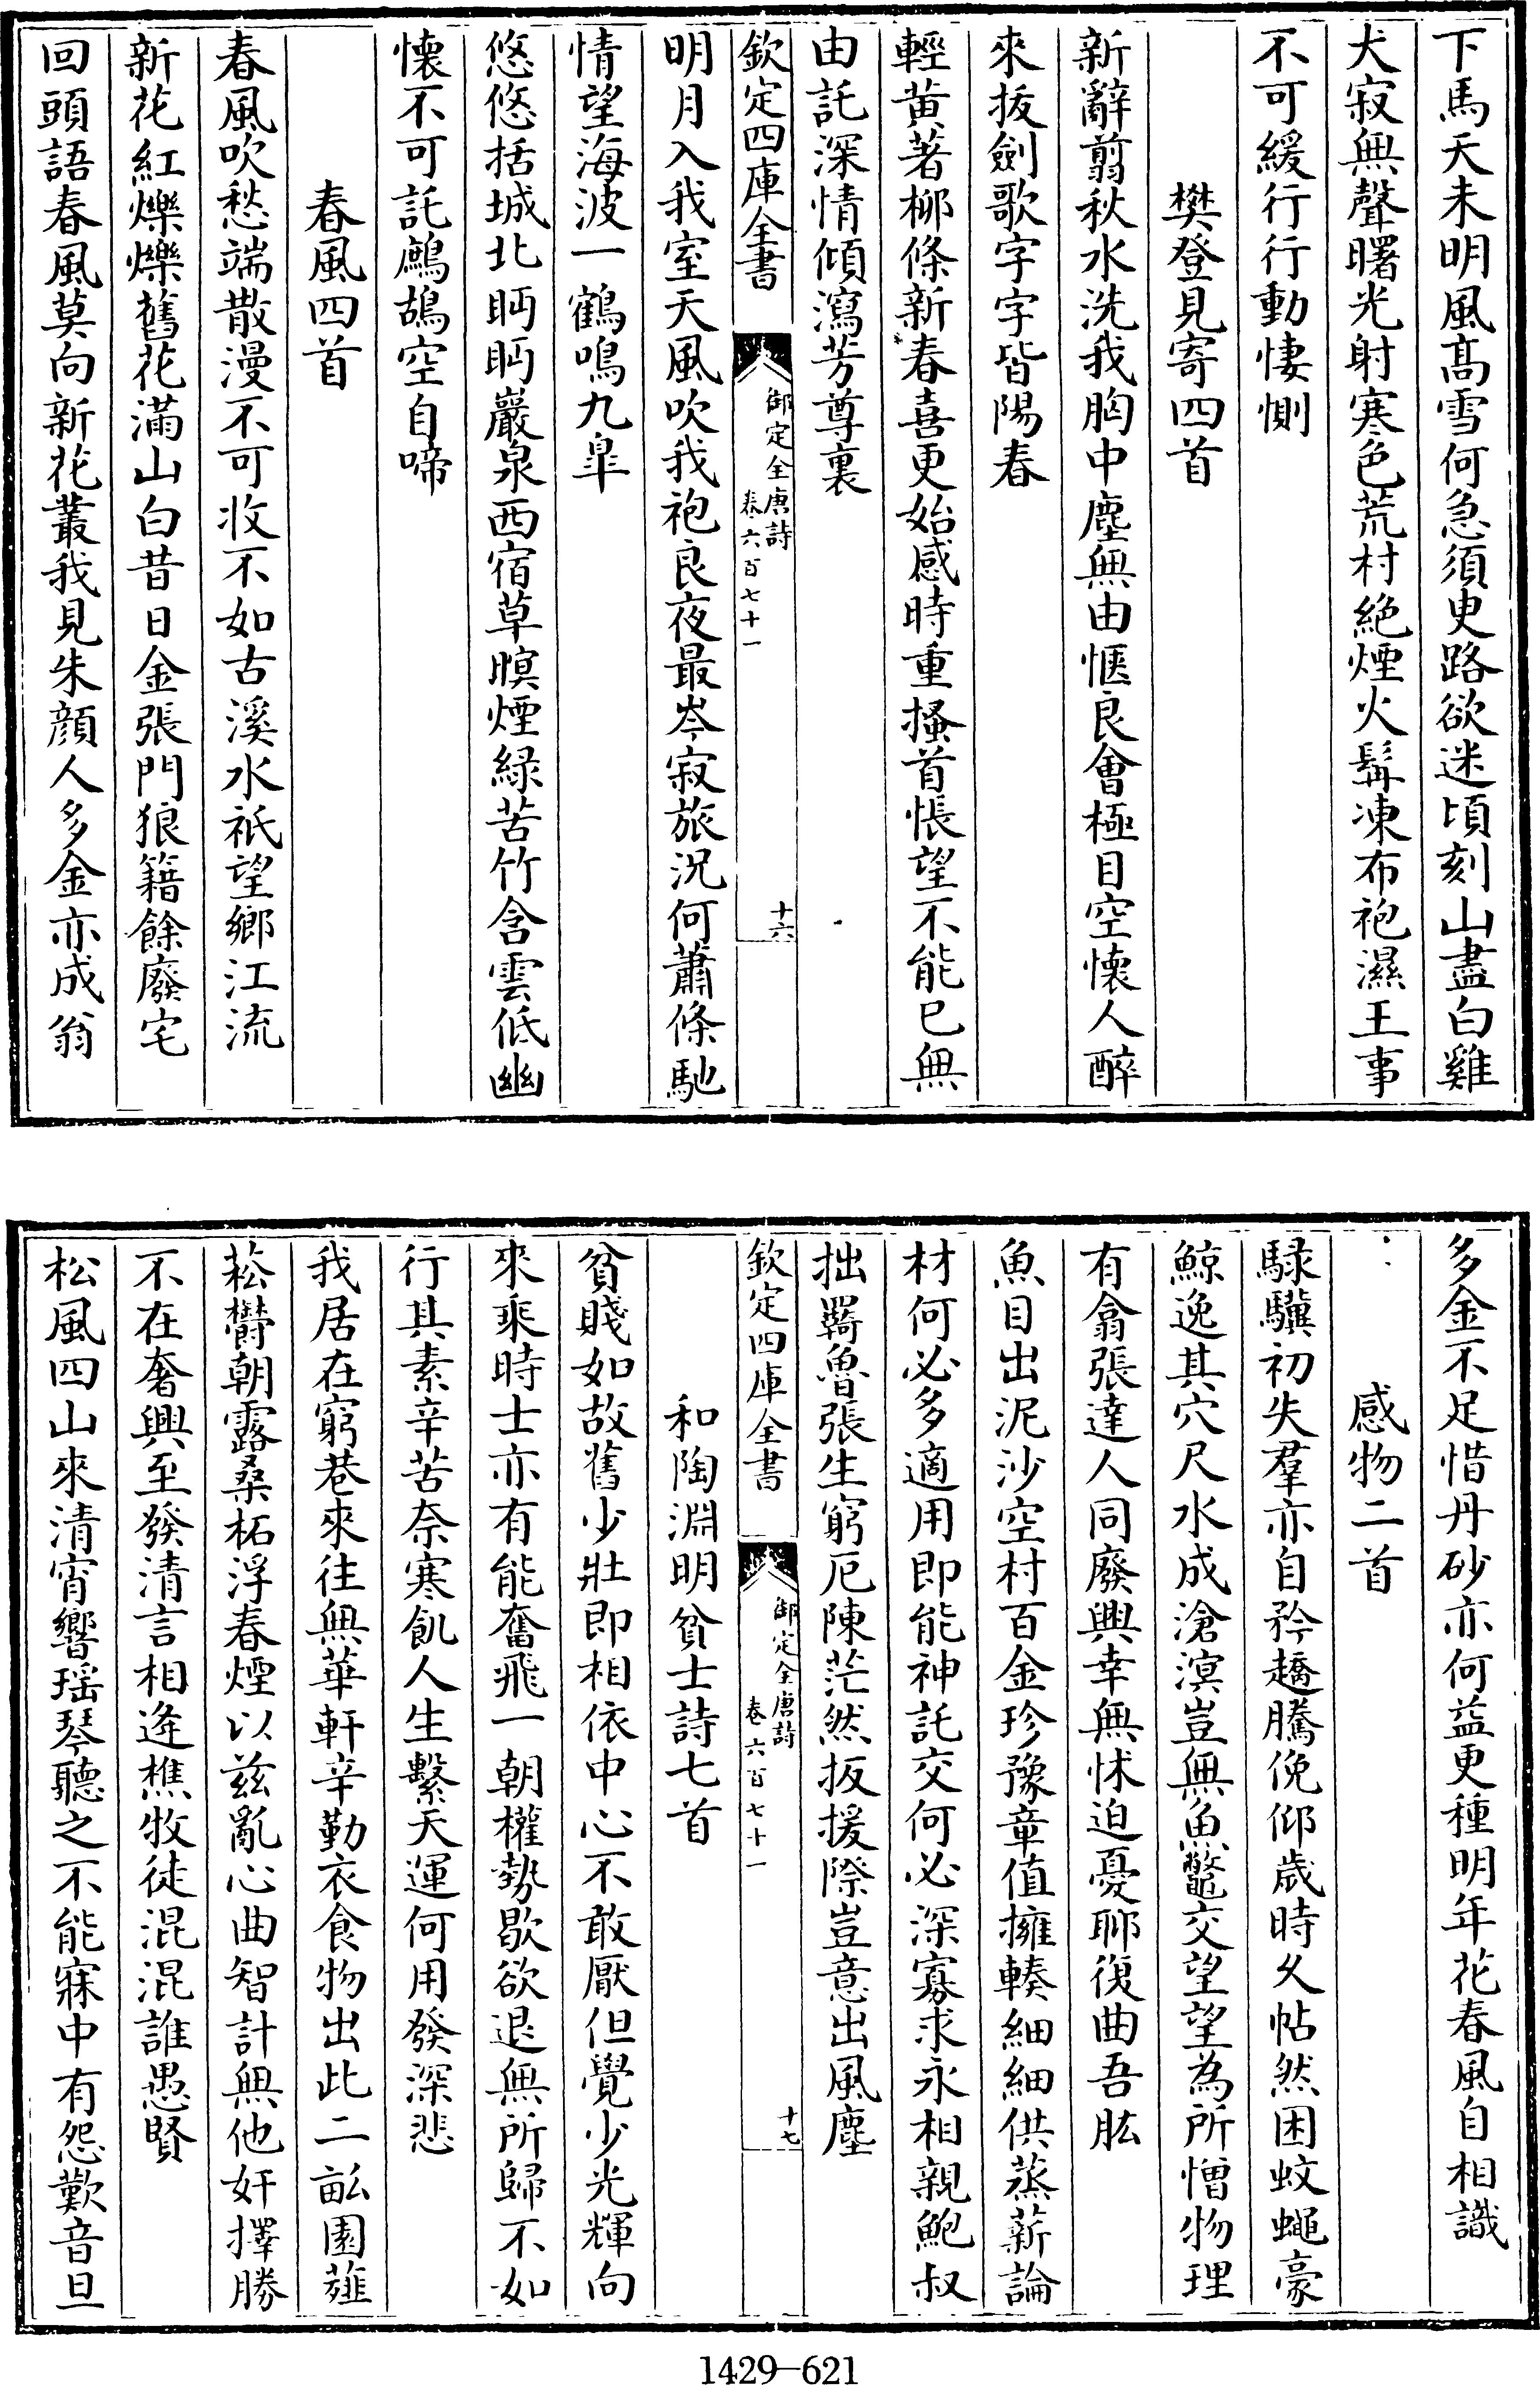 下馬天未明風髙雪何急須㕝路欲迷頃刻山盡白雞
犬寂無聲曙光射寒色荒村絶煙火髯凍布袍濕王事
不可緩行行動悽惻
樊登見寄四首
新辭翦秋水洗我胸中塵無由愜良會極目空懷人醉
來拔劍歌字字皆陽春
輕黄著柳條新春喜更始感時重搔首悵望不能已無
由託深情傾瀉芳尊裏
欽定四庫全書
御定全唐詩
卷六百七十一
十六
明月入我室天風吹我袍良夜最岑寂旅況何蕭條馳
情望海波一鶴鳴九臯
悠悠括城北眄眄巖泉西宿草暝煙緑苦竹含雲低幽
懷不可託鷓鴣空自啼
春風四首
春風吹愁端散漫不可收不如古溪水祇望鄉江流
新花紅爍爍舊花滿山白昔日金張門狼籍餘廢宅
回頭語春風莫向新花叢我見朱顔人多金亦成翁
多金不足惜丹砂亦何益更種明年花春風自相識
感物二首
騄驥初失羣亦自矜趫騰俛仰歲時久帖然困蚊蠅豪
鯨逸其穴尺水成滄溟豈無魚鼈交望望為所憎物理
有翕張達人同廢興幸無怵迫憂聊復曲吾肱
魚目出泥沙空村百金珍豫章值擁輳細細供蒸薪論
材何必多適用即能神託交何必深寡求永相親鮑叔
拙羇魯張生窮厄陳茫然扳援際豈意出風塵
欽定四庫全書
御定全唐詩
卷六百七十一
十七
和陶淵明貧士詩七首
貧賤如故舊少壯即相依中心不敢厭但覺少光輝向
來乘時士亦有能奮飛一朝權勢歇欲退無所歸不如
行其素辛苦奈寒飢人生繫天運何用發深悲
我居在窮巷來往無華軒辛勤衣食物出此二畝園薤
菘鬱朝露桑柘浮春煙以兹亂心曲智計無他奸擇勝
不在奢興至發清言相逄樵牧徒混混誰愚賢
松風四山來清宵響瑶琴聽之不能寐中有怨歎音旦
1429-621